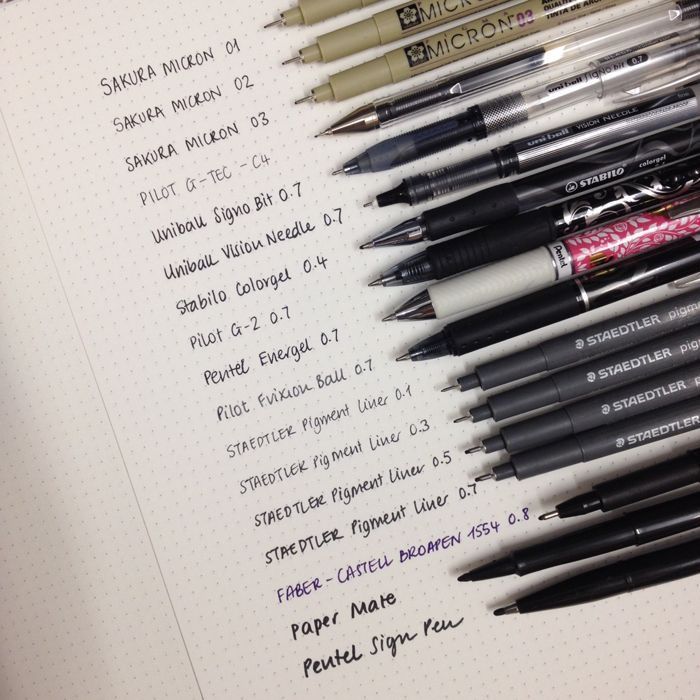 SAKURA MICRON 01
SAKURA MICRON 02
SAKURA MICRON 03
PILOT G-TEC-C4
Uniball Signo Bit 0.7
Uniball Vision Needle 0.7
Stabilo Colorgel 0.4
Pilot G-2 0.7
Pentel Energel 0.7
Pilot Frixion Ball 0.7
STAEDTLER Pigment Liner 0.1
STAEDTLER Pigment Liner 0.3
STAEDTLER Pigment Liner 0.5
STAEDTLER Pigment Liner 0.7
FABER-CASTELL BROAPEN 1554 0.8
Paper Mate
Pentel Sign Pen
MICRON
MICRON 03
TINTA DE
uni-ball Signo bit 0.7
uni-ball VISION NEEDLE
STABILO colorgel
Pentel
STAEDTLER pigm
STAEDTLER pigm
STAEDTLER pigm
STAEDTLER pigm